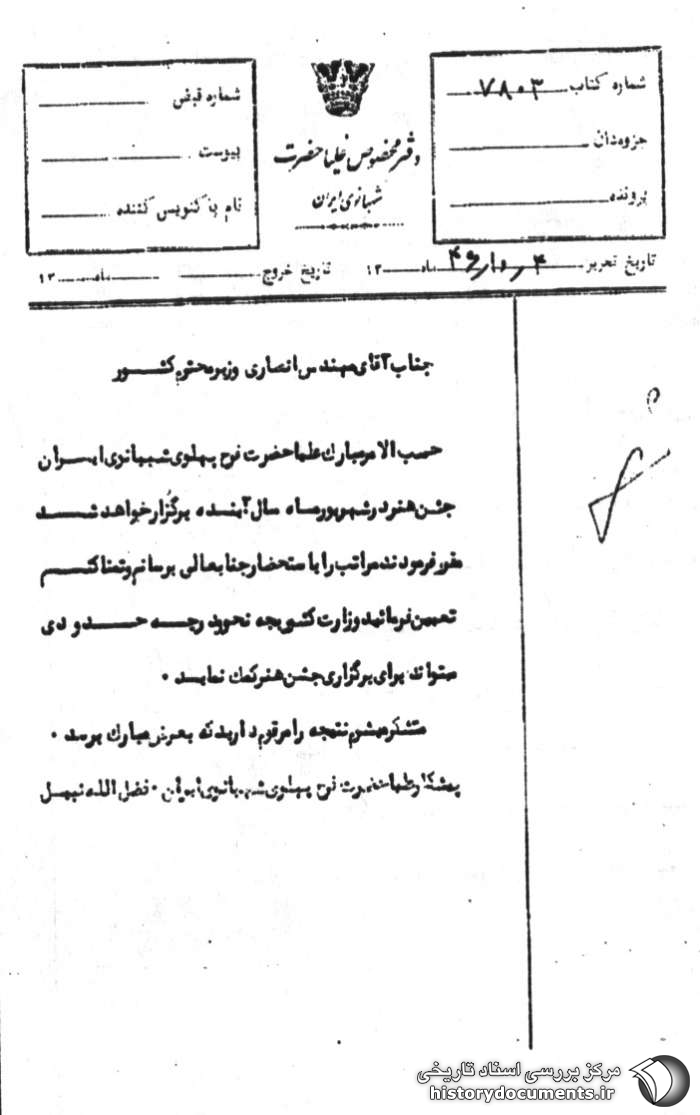 شماره کتاب ۷۸۰۳
جزوه‌دان
پرونده
دفتر مخصوص علیا حضرت
شهبانوی ایران
شماره قبض
پیوست
نام پاکنویس کننده
تاریخ تحریر ۴ ماه ۱۳ تاریخ خروج ماه ۱۳
جناب آقای مهندس انصاری وزیر محترم کشور
حسب الامر مبارک علیا حضرت فرح پهلوی شهبانوی ایران
جشن هنر در شهریور ماه سال آینده برگزار خواهد شد
مقرر فرمودند مراتب را باستحضار جنابعالی برسانم و تمنا کنم
تعیین فرمائید وزارت کشور بچه نحو و در چه حدودی
میتواند برای برگزاری جشن هنر کمک نماید ۰
متشکر میشوم نتیجه را مرقوم دارید که بعرض مبارک برسد ۰
پیشکار علیا حضرت فرح پهلوی شهبانوی ایران ۰ فضل الله نبیل
مرکز بررسی اسناد تاریخی
historydocuments.ir